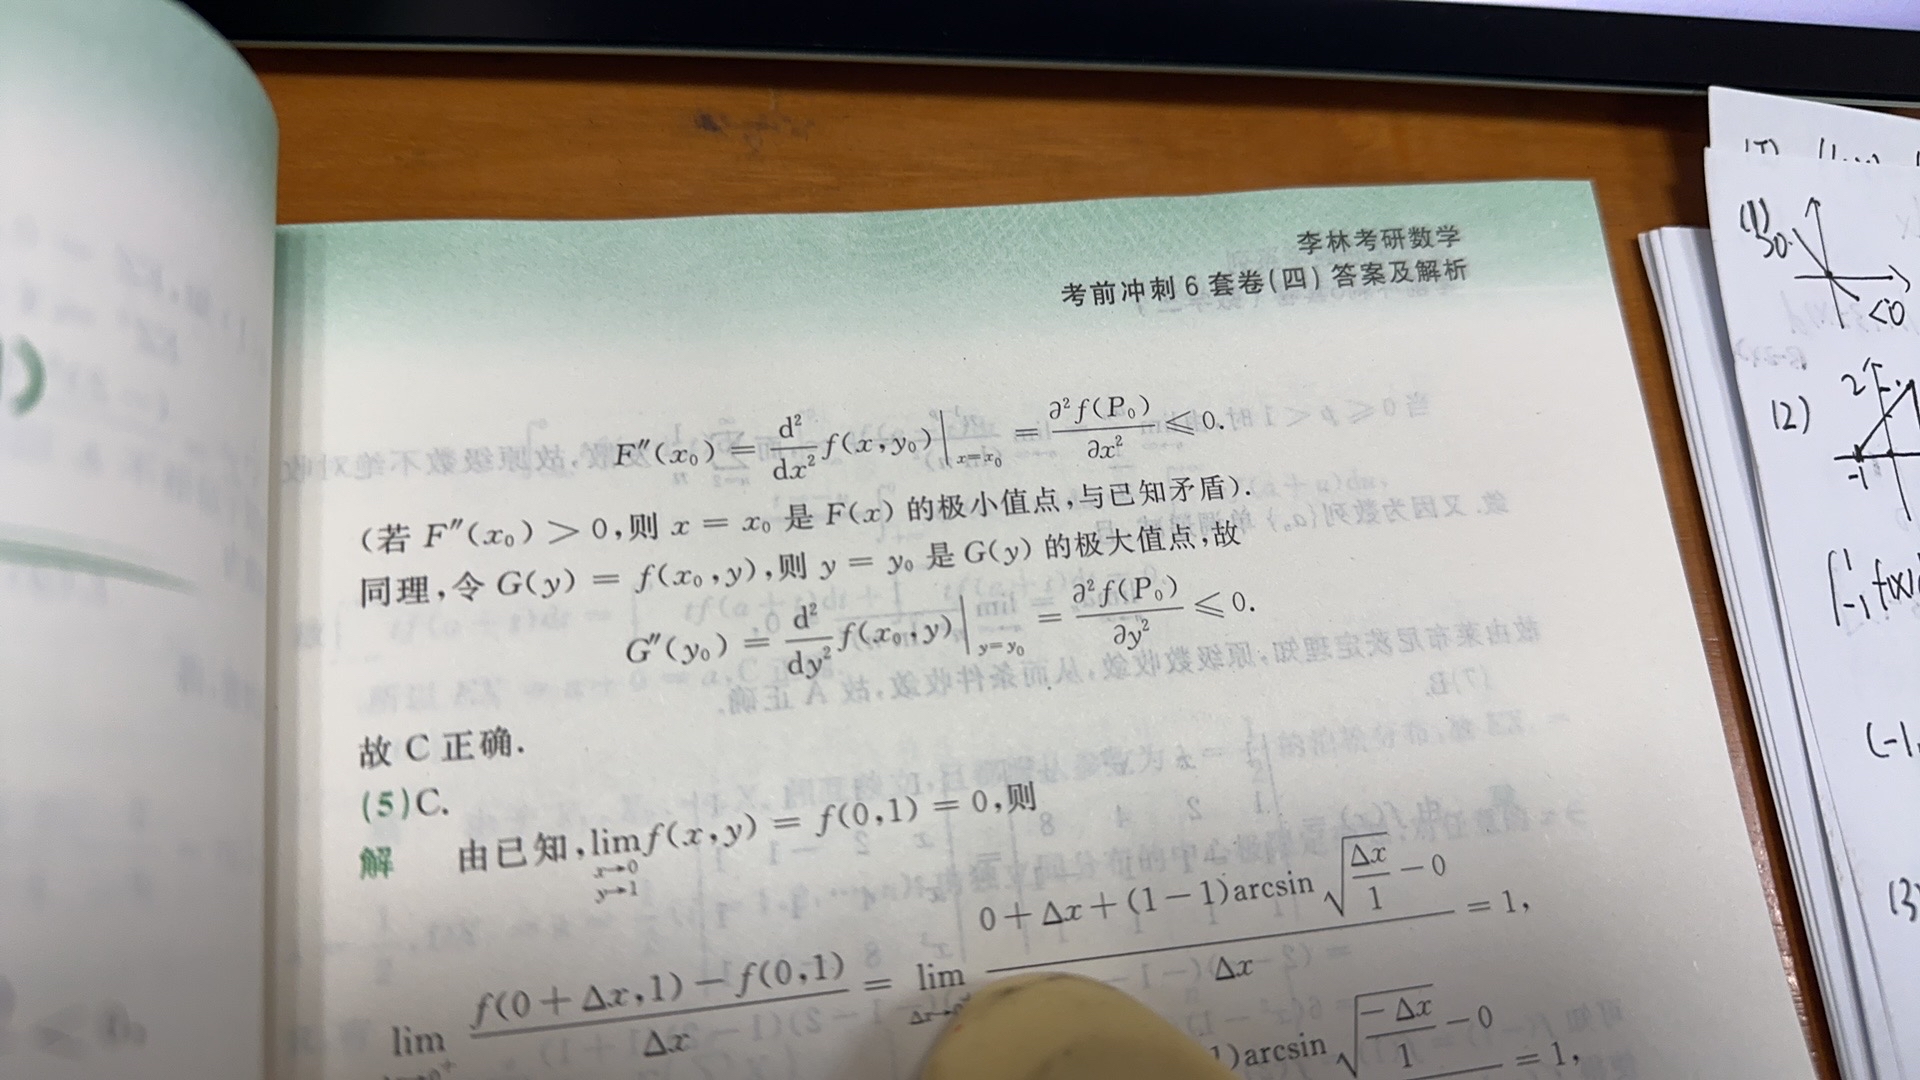 李林考研数学
考前冲刺6套卷(四)答案及解析
F″(x₀) = d²/dx² f(x,y₀)|ₓ₌ₓ₀ = ∂²f(P₀)/∂x² ⩽ 0.
(若 F″(x₀) > 0,则 x = x₀ 是 F(x) 的极小值点,与已知矛盾).
同理,令 G(y) = f(x₀,y),则 y = y₀ 是 G(y) 的极大值点,故
G″(y₀) = d²/dy² f(x₀,y)|y=y₀ = ∂²f(P₀)/∂y² ⩽ 0.
故 C 正确.
(5)C.
解 由已知,lim x→0 y→1 f(x,y) = f(0,1) = 0,则
lim f(0+Δx,1)−f(0,1)/Δx = lim 0+Δx+(1−1)arcsin√(Δx/1)−0/Δx = 1,
1)arcsin√(−Δx/1)−0 = 1,
(1)
>0.
<0
(2)
2
-1
∫₋₁¹ f(x)
(-1,
(3)